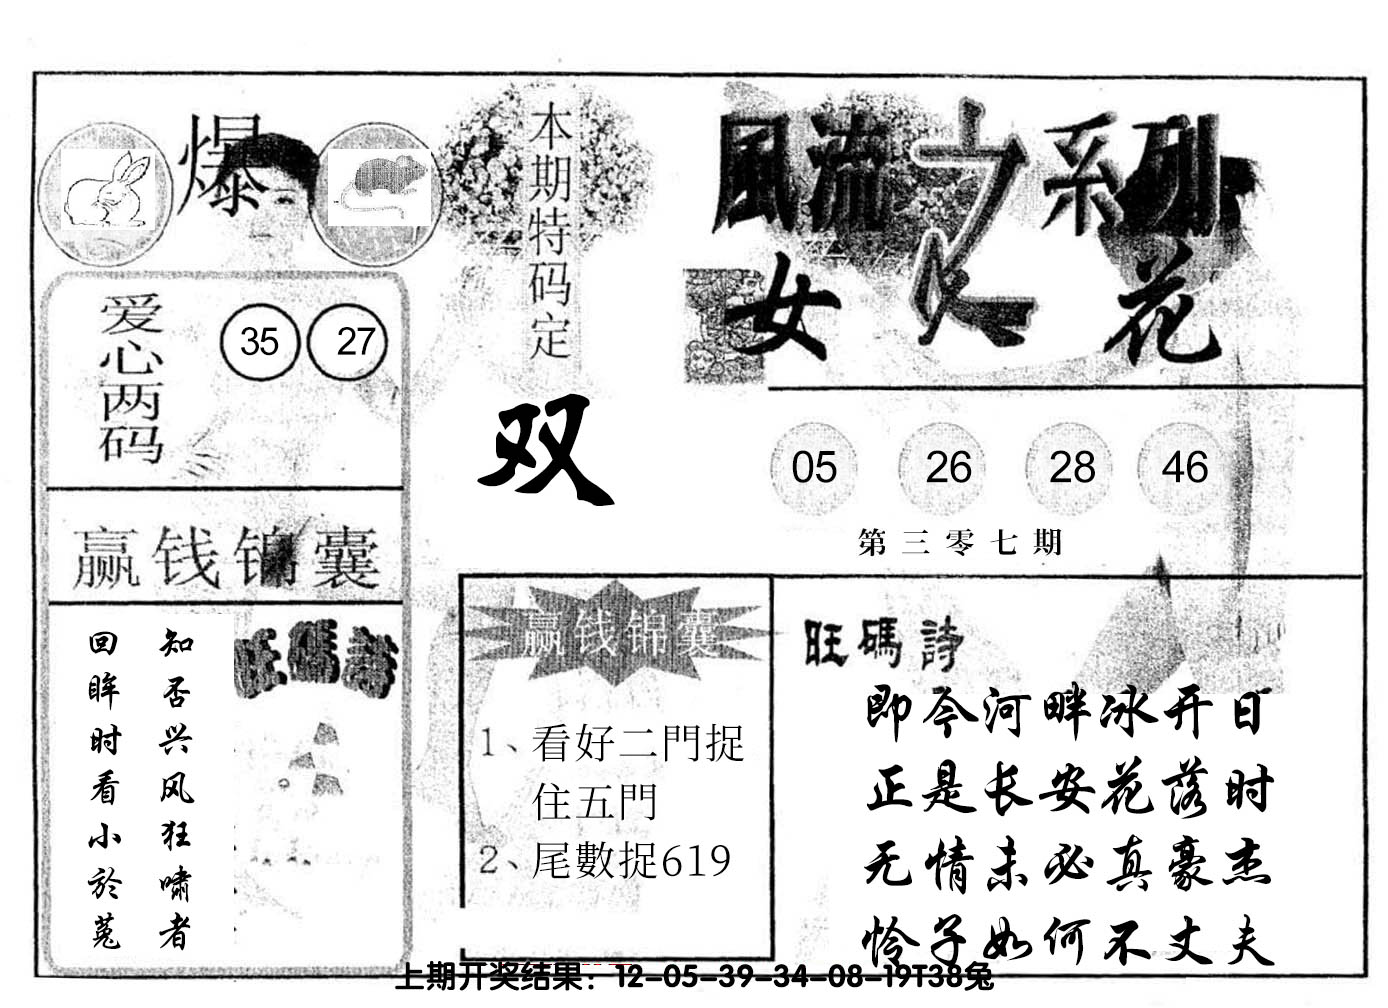 爆
本期特码定
双
風流之系列
女人花
爱心两码
35 27
05 26 28 46
第三零七期
赢钱锦囊
知否兴风狂啸者
回眸时看小於菟
旺碼詩
赢钱锦囊
1、看好二門捉
住五門
2、尾數捉619
旺碼詩
即今河畔冰开日
正是长安花落时
无情未必真豪杰
怜子如何不丈夫
上期开奖结果：12-05-39-34-08-19T38兔